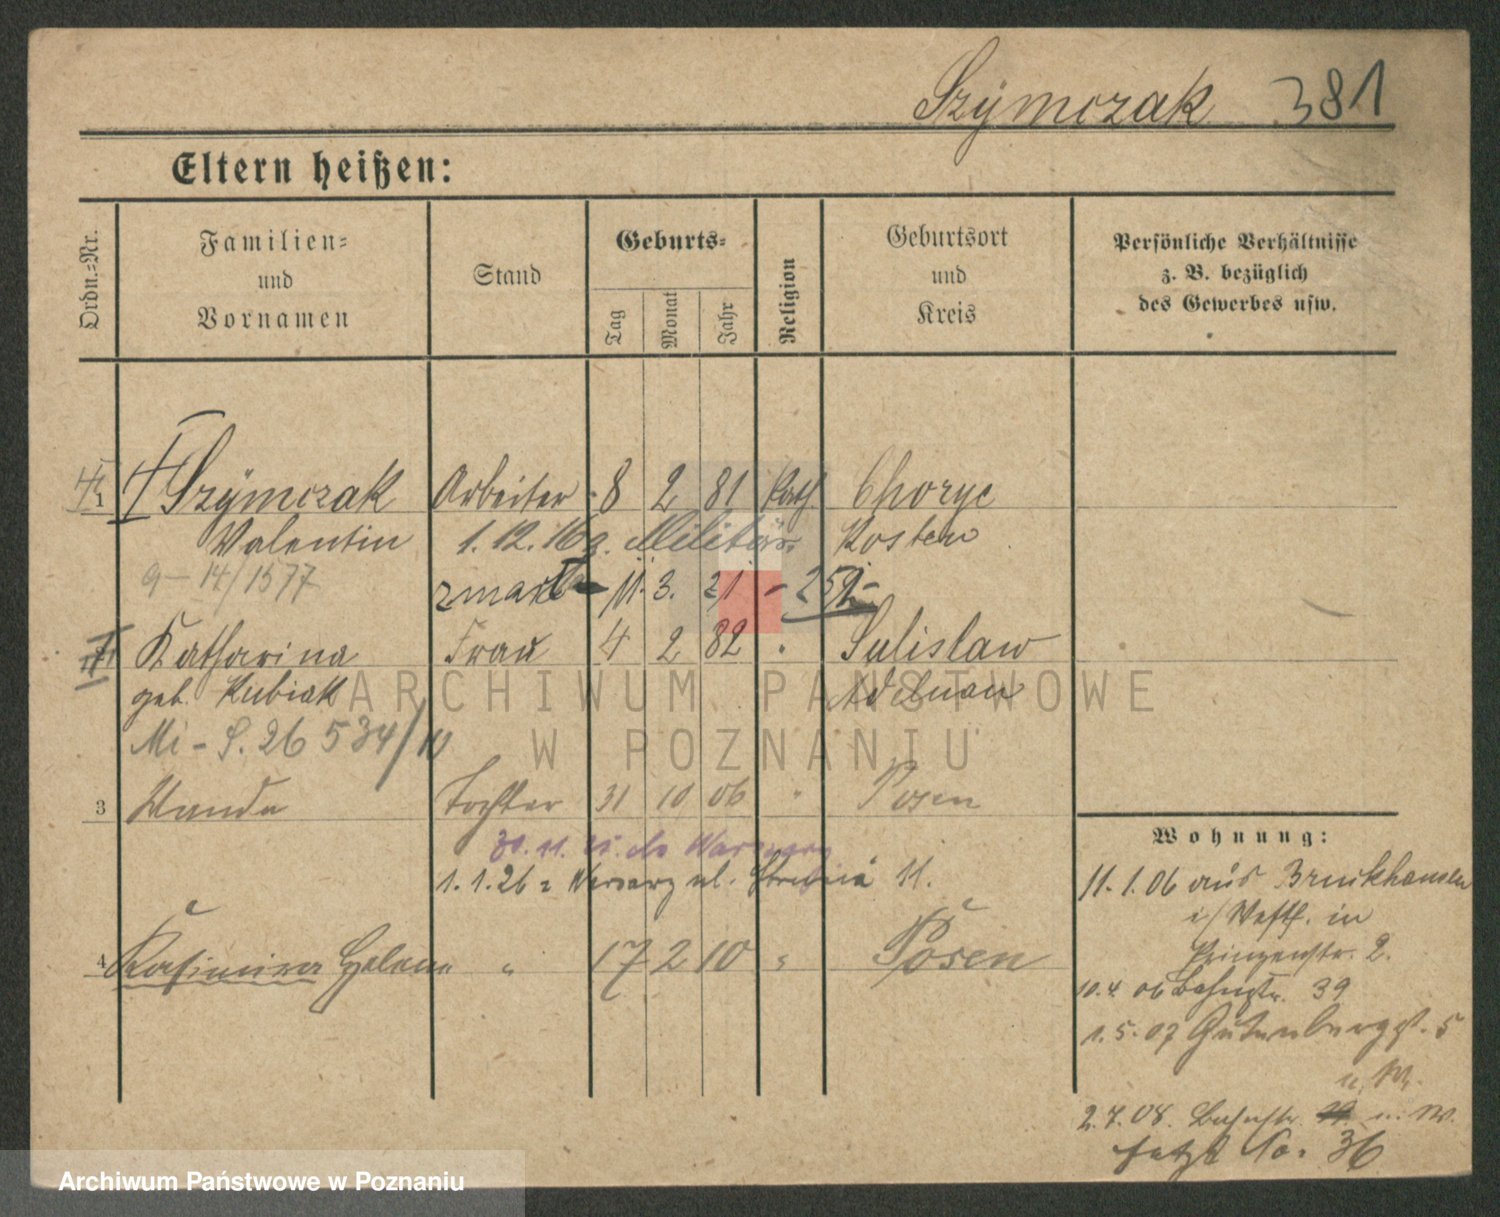 Szÿmczak 381
Eltern heißen:
Ordn.=Nr.
Familien=
und
Vornamen
Stand
Geburts=
Tag
Monat
Jahr
Religion
Geburtsort
und
Kreis
Persönliche Verhältnisse
z. B. bezüglich
des Gewerbes usw.
1 Szÿmczak Arbeiter 8 2 81 Kath. Chorye
Valentin 1. 12. 16 z. Militär Kosten
9-14/1577
zmarł 11. 3. 21 - 252 -
Katharina Frau 4 2 82 " Sulislaw
geb. Kubiak Adelnau
Mi - S. 26 534/
3 Wanda Tochter 31 10 06 " Posen
30. 11. do
1. 1. 26 z ul. 11.
4 Kasimira Helene " 17 2 10 " Posen
Wohnung:
11. 1. 06 aus Bruckhausen
i/ Westf. in
Prinzenstr. 2.
10. 4. 06 Bahnstr. 39
1. 5. 07 Gutenbergst. 5
n. W.
2. 7. 08. Bahnstr. n. W.
jetzt No. 36
ARCHIWUM PAŃSTWOWE
W POZNANIU
Archiwum Państwowe w Poznaniu